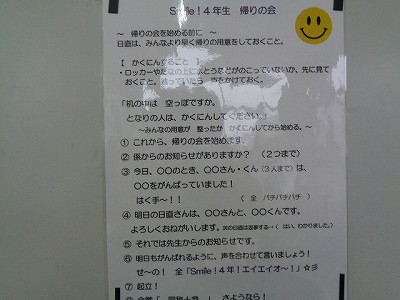 Smile!4年生 帰りの会
~ 帰りの会を始める前に ~
日直は、みんなより早く帰りの用意をしておくこと。
【 かくにんすること 】
・ロッカーやたなの上に ぶとうなどがのこっていないか、先に見て
おくこと。残っていたら 声をかけておく。
「机の中は 空っぽですか。
となりの人は、かくにんしてください。」
~みんなの用意が 整ったか かくにんしてから始める。~
① これから、帰りの会を始めます。
② 係からのお知らせがありますか? (2つまで)
③ 今日、〇〇のとき、〇〇さん・くん(3人まで)は、
〇〇をがんばっていました!
はく手~!! (全 パチパチパチ)
④ 明日の日直さんは、〇〇さんと、〇〇くんです。
よろしくおねがいします。次の日直は返事する→(はい、わかりました。)
⑤ それでは先生からのお知らせです。
⑥ 明日もがんばれるように、声を合わせて言いましょう!
せ~の! 全「Smile!4年!エイエイオ~!」☆彡
⑦ 起立!
さようなら!